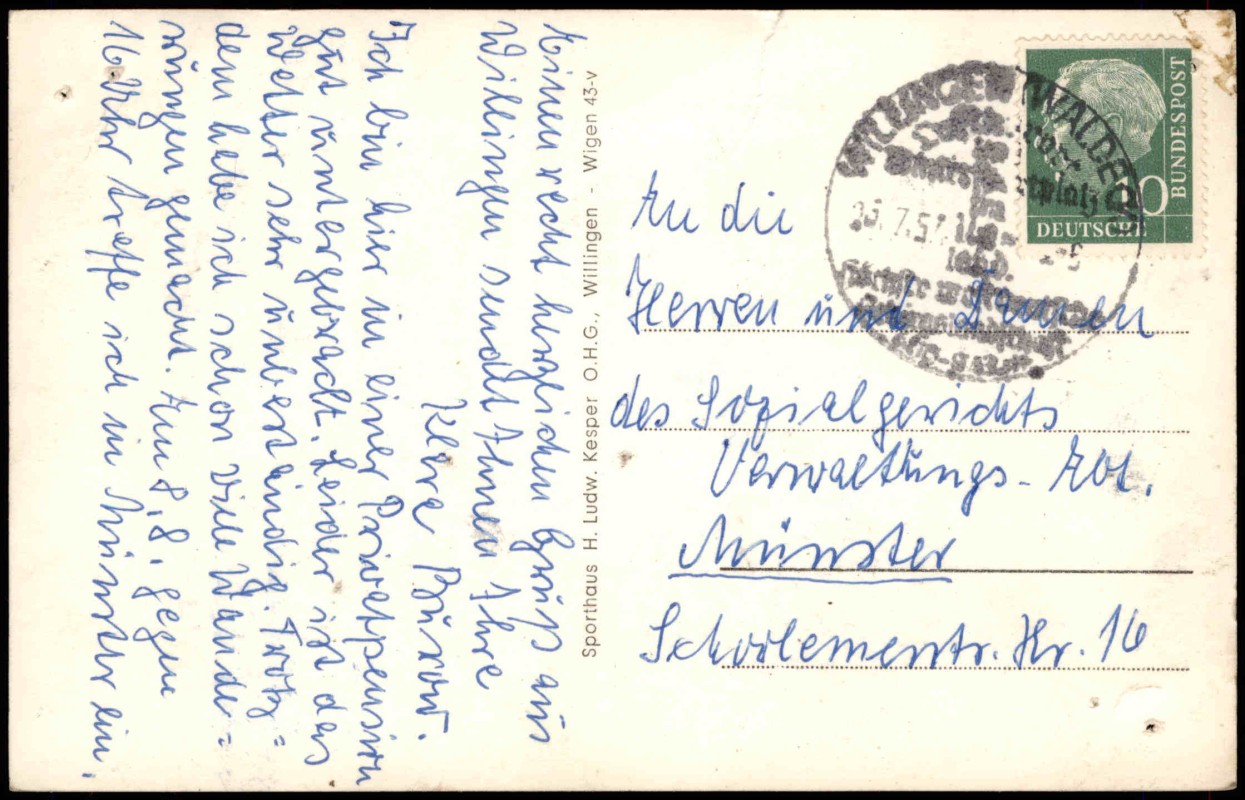 Einen recht herzlichen Gruß aus
Willingen sendet Ihnen Ihre
Klara Buxow.
Ich bin hier in einer Privatpension
gut untergebracht. Leider ist das
Wetter sehr unbeständig. Trotz=
dem habe ich schon viele Wande=
rungen gemacht. Am 8.8. gegen
16 Uhr treffe ich in Münster ein.
Sporthaus H. Ludw. Kesper O.H.G., Willingen - Wigen 43-v
An die
Herren und Damen
des Sozialgerichts
Verwaltungs-Abt.
Münster
Schorlemerstr. Nr. 16
WILLINGEN (WALDECK)
.7.57.
10
BUNDESPOST
DEUTSCHE